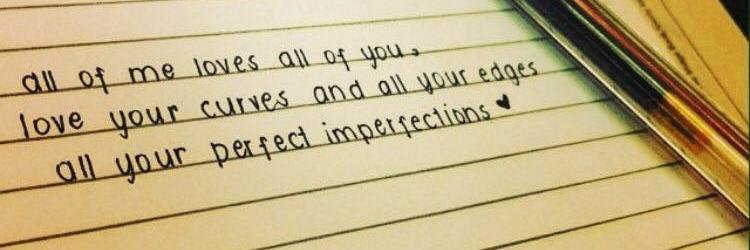 all of me loves all of you,
love your curves and all your edges
all your perfect imperfections ♥